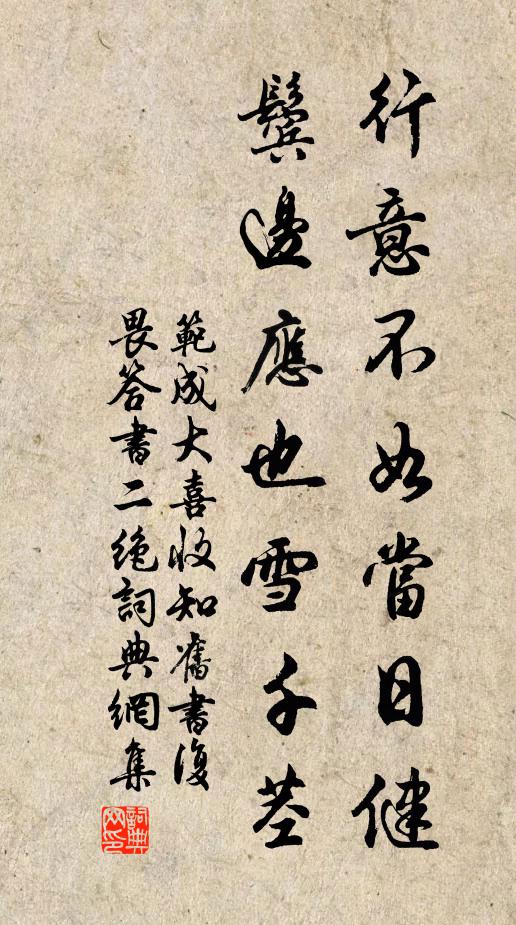 行意不如當日健
鬢邊應也雪千莖
範成大喜收知舊書復
畏答書二絶詞典網集
詞典网印